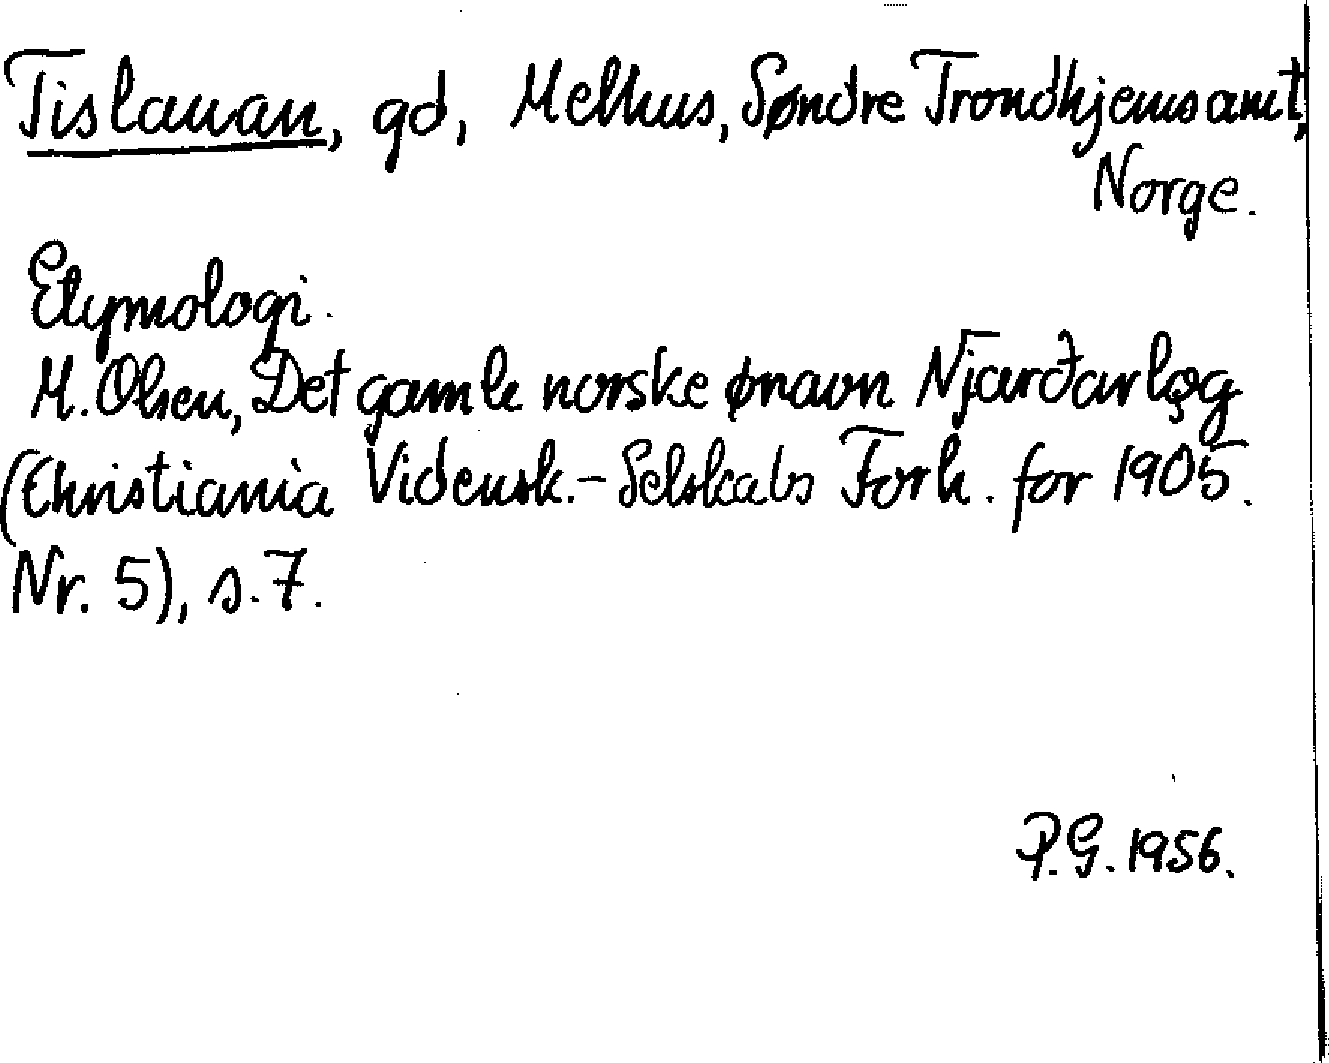 Tislauan, gd, Melhus, Søndre Trondhjems amt,
Norge.
Etymologi.
M. Olsen, Det gamle norske ønavn Njarðarlǫg
(Christiania Vidensk.-Selskabs Forh. for 1905.
Nr. 5), s. 7.
P.G. 1956.